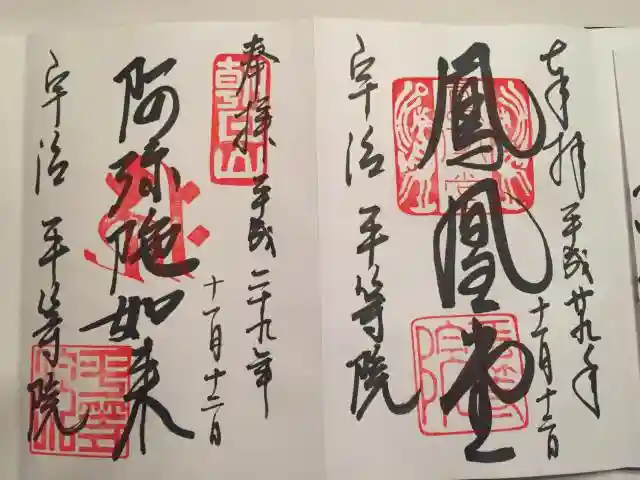 奉拝 平成廿九年
十一月十二日
鳳凰堂
宇治 平等院
奉拝 平成二十九年
十一月十二日
朝日山
阿弥陀如来
宇治 平等院